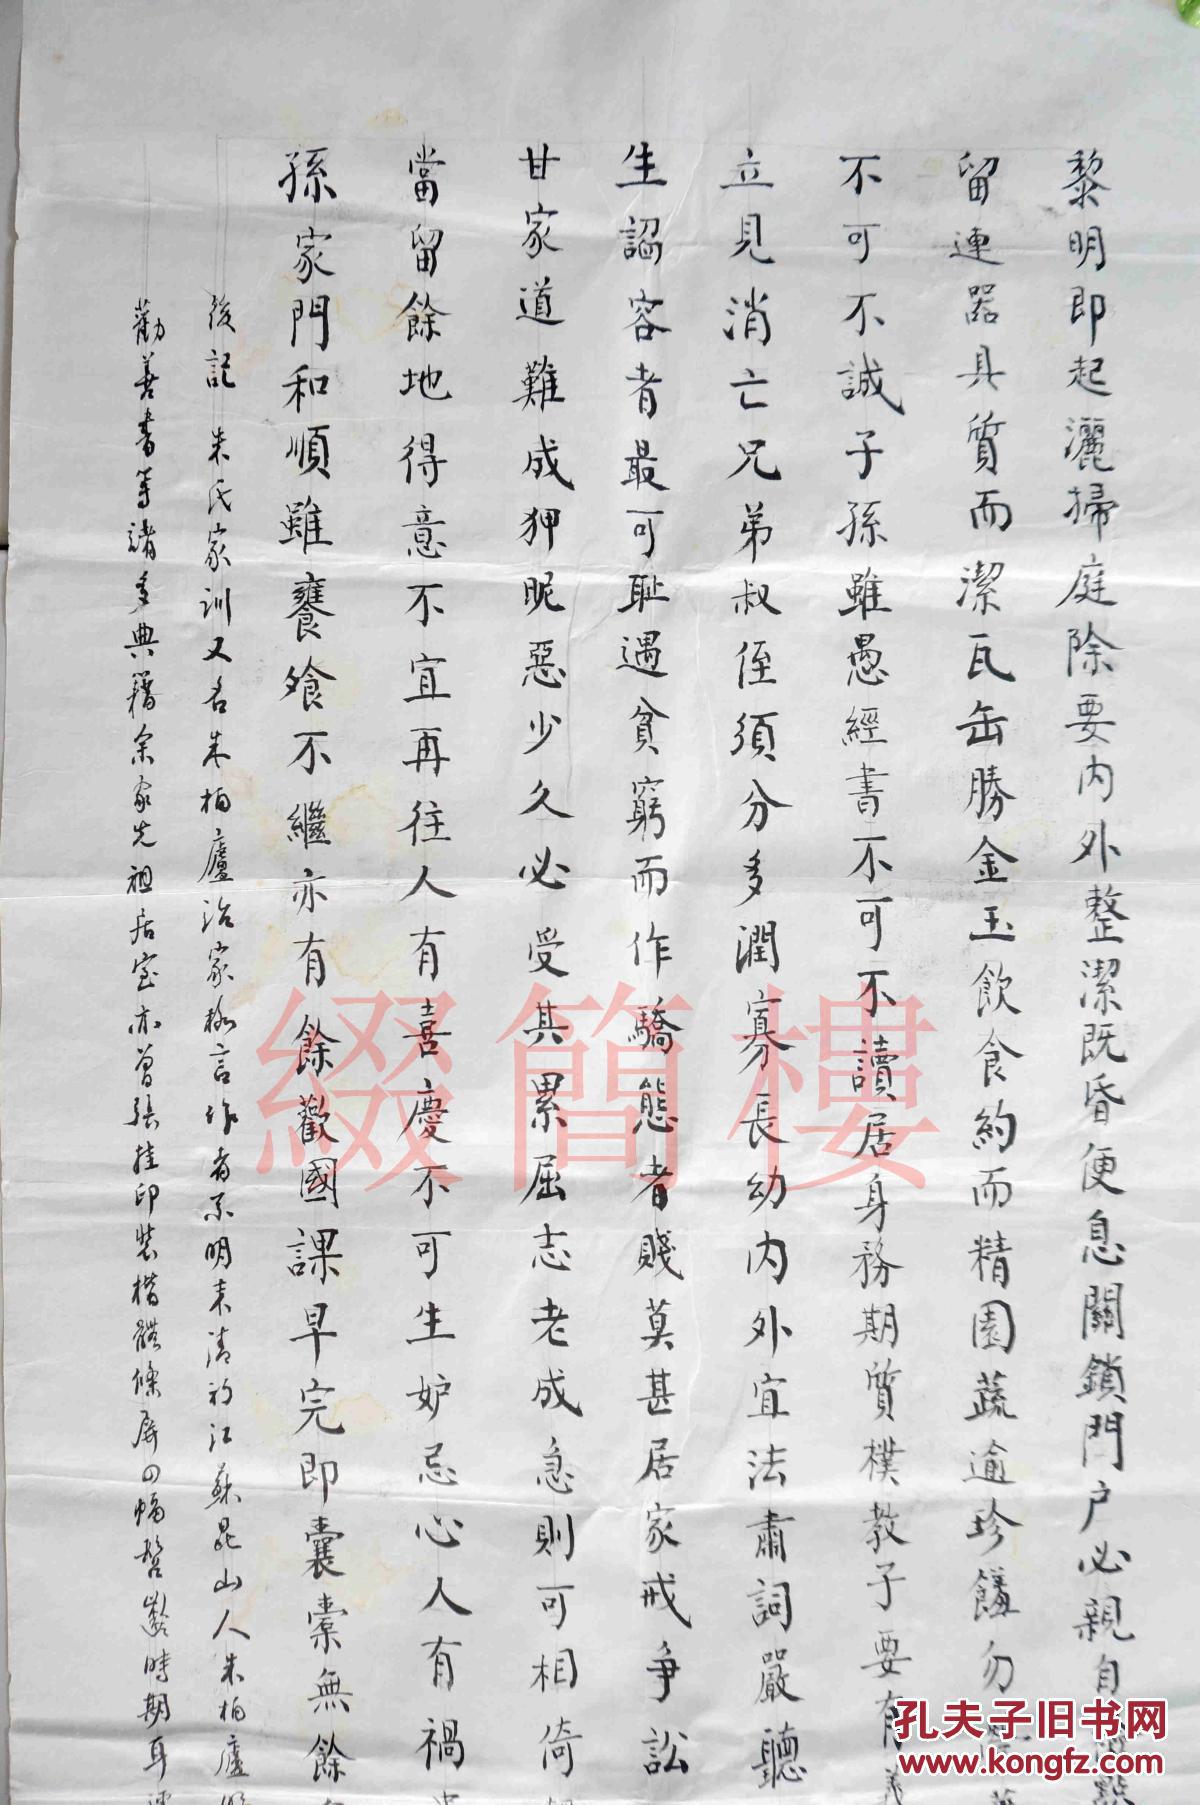 黎明即起灑掃庭除要內外整潔既昏便息關鎖門户必親自
留連器具質而潔瓦缶勝金玉飲食約而精園蔬逾珍饈勿
不可不誠子孫雖愚經書不可不讀居身務期質樸教子要有義
立見消亡兄弟叔侄須分多潤寡長幼內外宜法肅詞嚴聽
生諂容者最可恥遇貧窮而作驕態者賤莫甚居家戒爭訟
甘家道難成狎昵惡少久必受其累屈志老成急則可相倚
當留餘地得意不宜再往人有喜慶不可生妒忌心人有禍
孫家門和順雖饔飧不繼亦有餘歡國課早完即囊橐無餘
後記 朱氏家训又名朱柏廬治家格言作者系明末清初江蘇昆山人朱柏廬
勸善書等諸多典籍余家先祖居室亦曾張挂印裝楷體條屏四幅髫齡時期耳
綴簡樓
孔夫子旧书网
www.kongfz.com